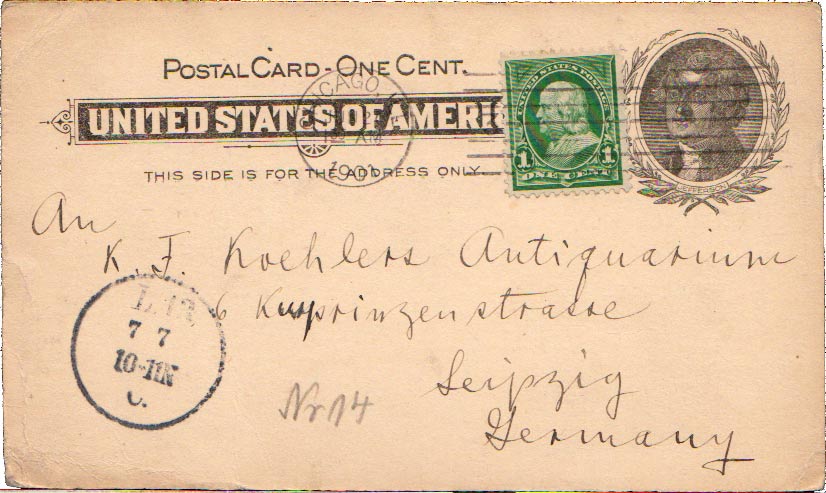 POSTAL CARD - ONE CENT.
UNITED STATES OF AMERI
THIS SIDE IS FOR THE ADDRESS ONLY.
CHICAGO,
1901
UNITED STATES POSTAGE
1 1
ONE CENT
JEFFERSON
An
K. F. Koehlers Antiquarium
6 Kurprinzenstrasse
Leipzig
Germany
7 7
10-11N
Nr 14